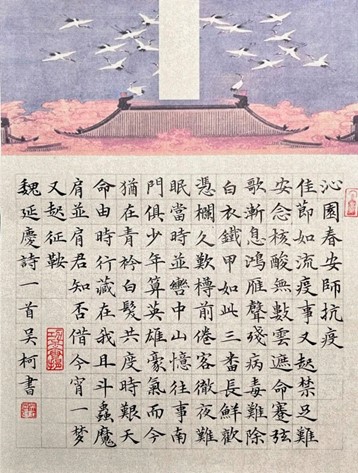 沁園春安師抗疫
佳節如流疫事又起禁足難
安念核酸無數雲遮命蹇弦
歌漸息鴻雁聲殘病毒難除
白衣鐵甲如此三番長鮮歡
憑欄久歎樽前倦客徹夜難
眠當時並轡中山憶往事南
門俱少年算英雄豪氣而今
猶在青衿白髮共度時艱天
命由時行藏在我且斗蟲魔
肩並肩君知否借今宵一梦
又起征鞍
魏延慶詩一首吳柯書